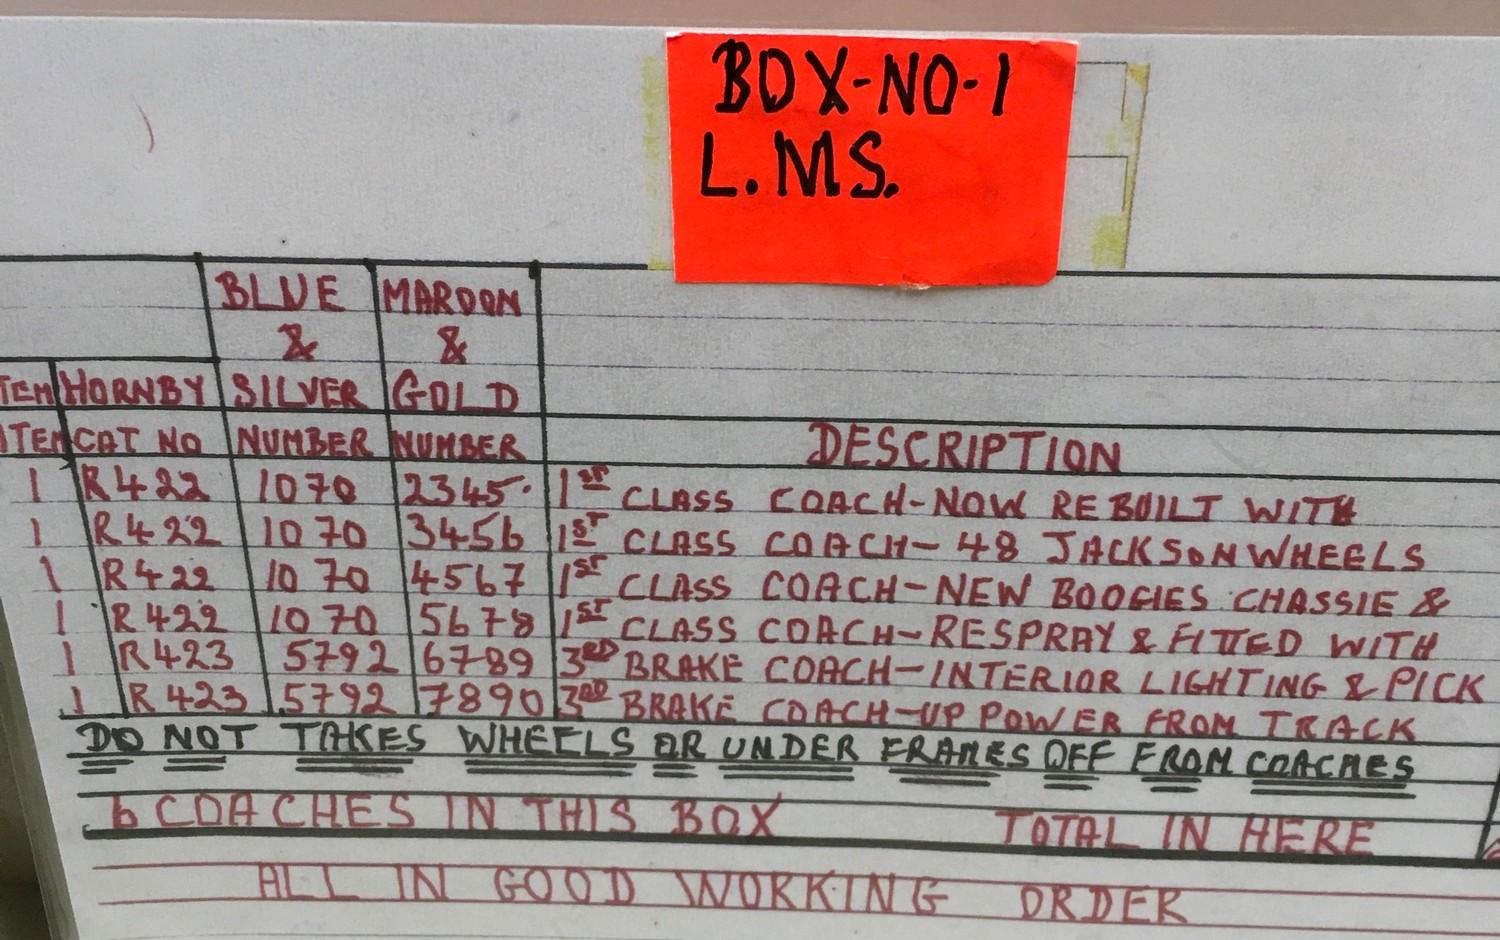 BOX-NO-1
L.MS.
BLUE MAROON
& &
TEM HORNBY SILVER GOLD
ITEM CAT NO NUMBER NUMBER DESCRIPTION
1 R422 1070 2345. 1ST CLASS COACH-NOW REBUILT WITH
1 R422 1070 3456 1ST CLASS COACH-48 JACKSON WHEELS
1 R422 1070 4567 1ST CLASS COACH-NEW BOOGIES CHASSIE &
1 R422 1070 5678 1ST CLASS COACH-RESPRAY & FITTED WITH
1 R423 5792 6789 3RD BRAKE COACH-INTERIOR LIGHTING & PICK
1 R423 5792 7890 3RD BRAKE COACH-UP POWER FROM TRACK
DO NOT TAKES WHEELS OR UNDER FRAMES OFF FROM COACHES
6 COACHES IN THIS BOX TOTAL IN HERE
ALL IN GOOD WORKING ORDER